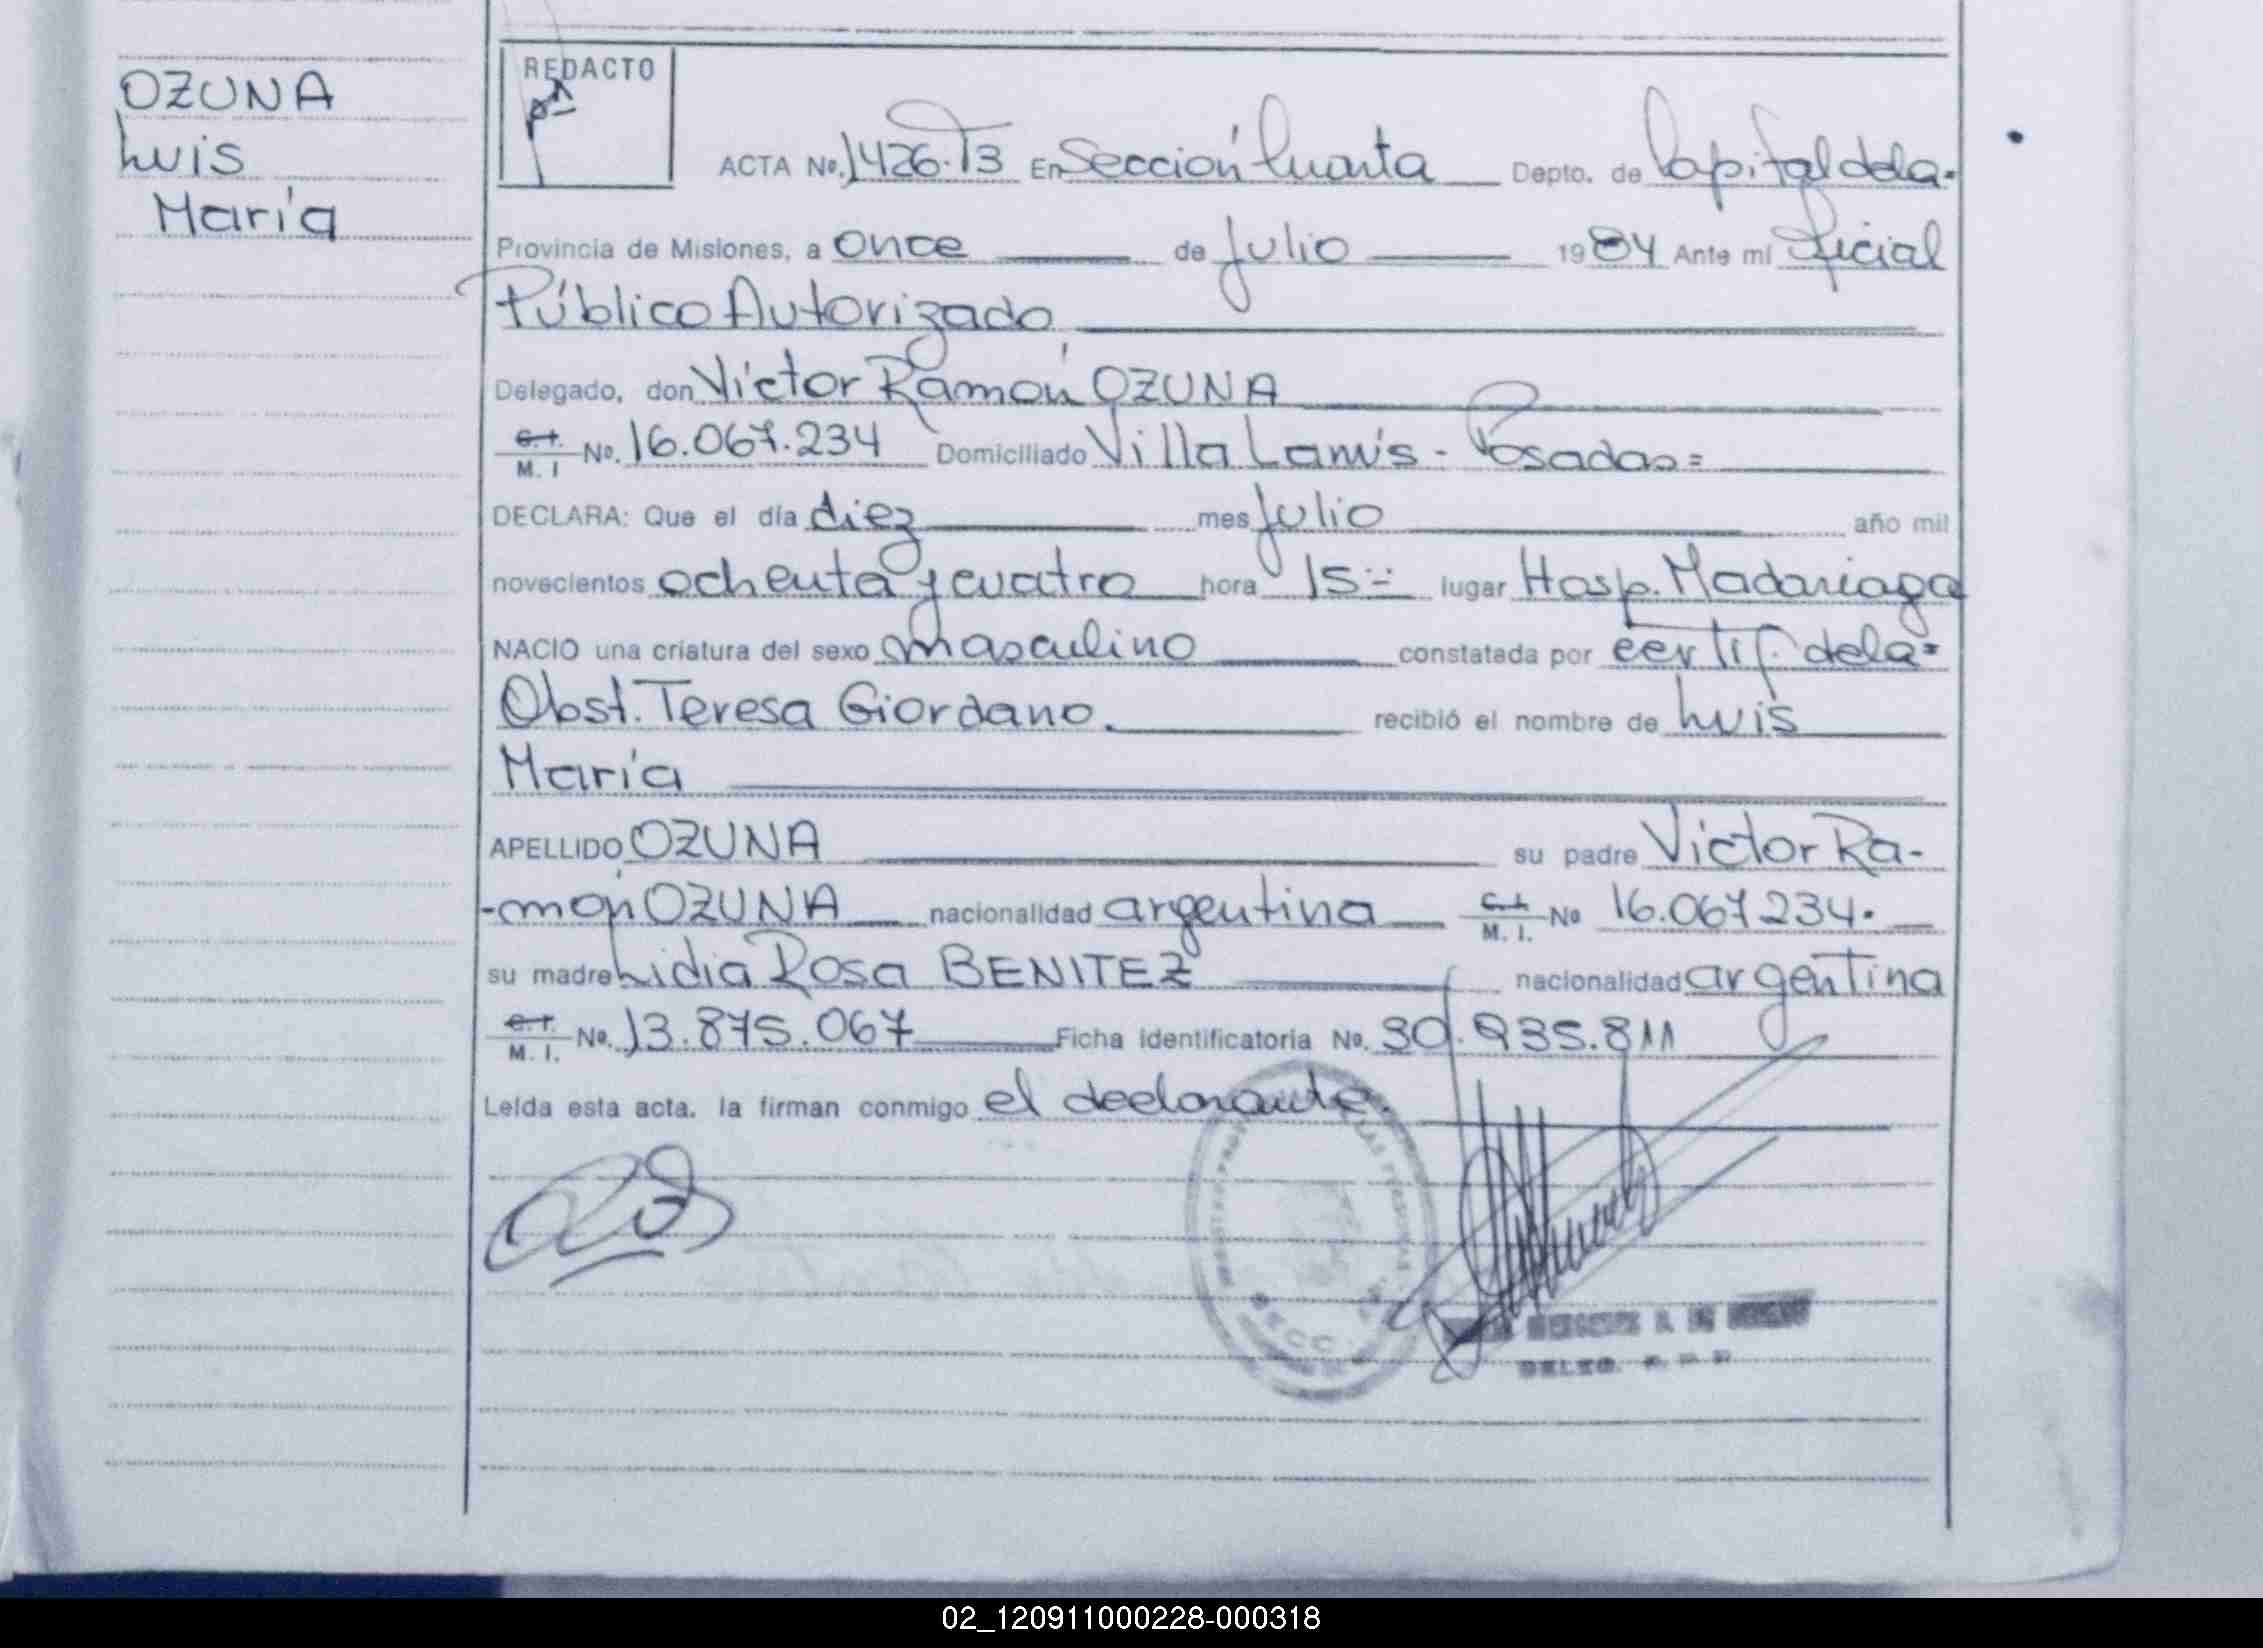 OZUNA
Luis
María
REDACTO
ACTA No. 1426.T3 En Sección Cuarta Depto. de Capital dela-
Provincia de Misiones, a once de Julio 1984 Ante mi Oficial
Público Autorizado
Delegado, don Víctor Ramón OZUNA
C.I. M. I No. 16.067.234 Domiciliado Villa Lanús - Posadas=
DECLARA: Que el día diez mes Julio año mil
novecientos ochenta y cuatro hora 15:- lugar Hosp. Madariaga
NACIO una criatura del sexo masculino constatada por certif. dela=
Obst. Teresa Giordano. recibió el nombre de Luis
María
APELLIDO OZUNA su padre Víctor Ra-
-món OZUNA nacionalidad argentina C.I. M. I. No 16.067234.
su madre Lidia Rosa BENITEZ nacionalidad argentina
C.I. M. I. No. 13.875.067 Ficha identificatoria No. 30.935.811
Leída esta acta. la firman conmigo el declarante.
SECC.
DELEG.
02_120911000228-000318